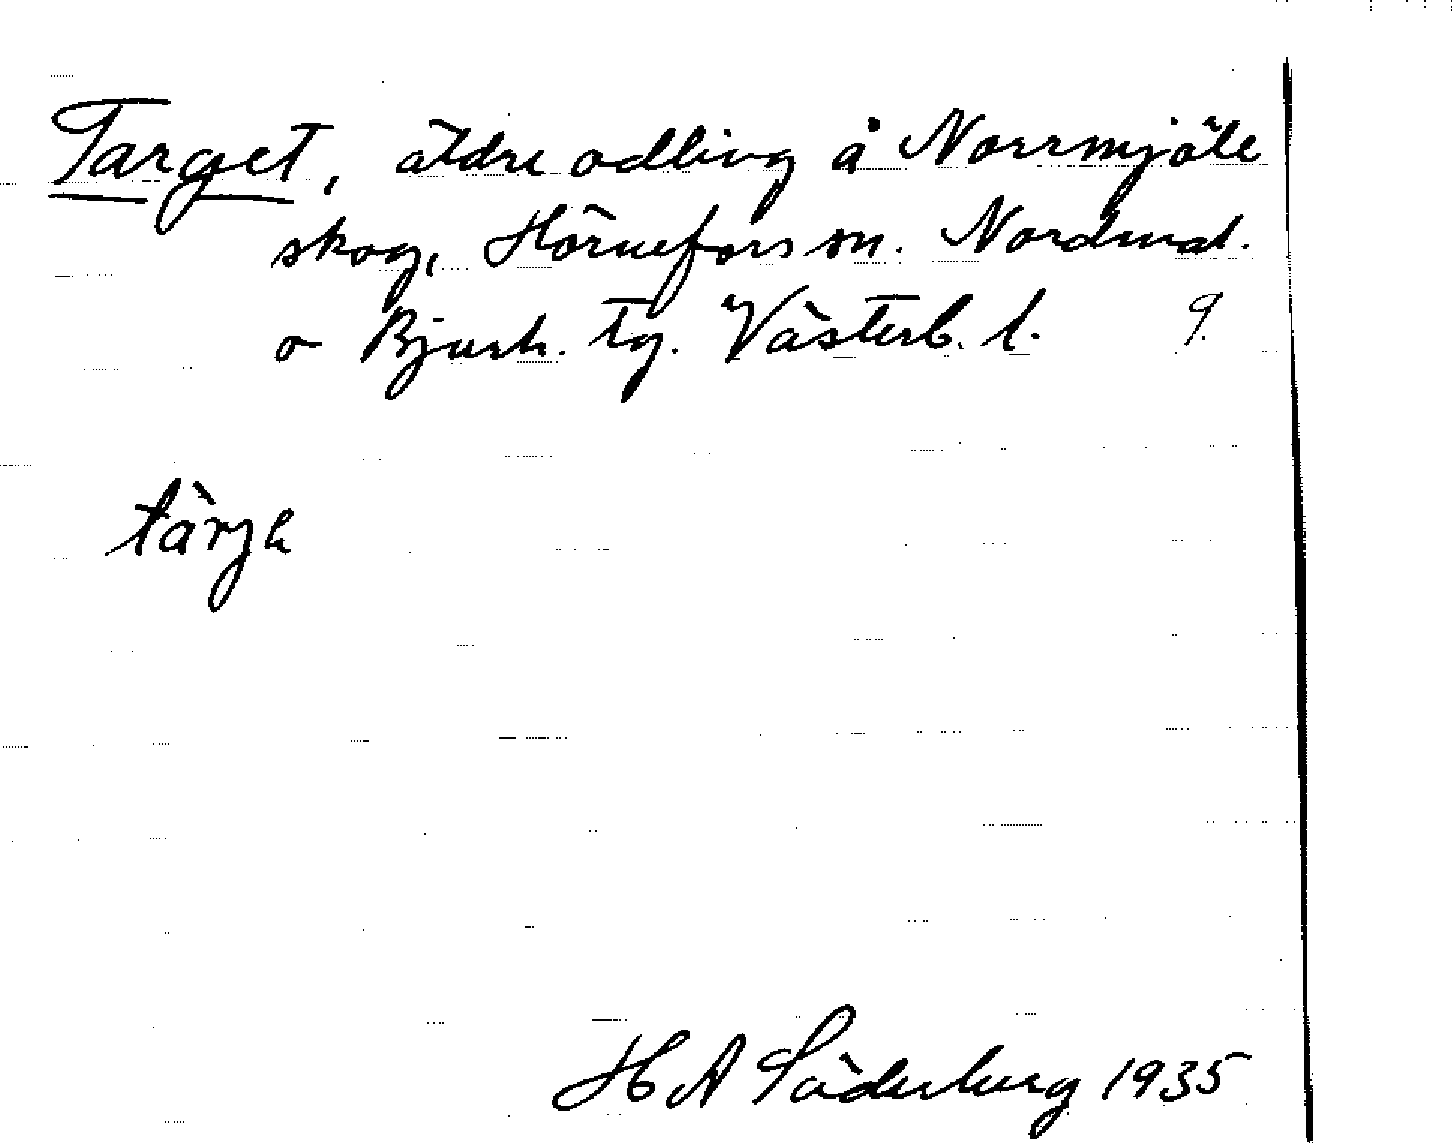 Target, äldre odling å Norrmjöle
skog, Hörnefors sn. Nordmal.
o Bjurh. tg. Västerb. l. 9.
tàrjə
H A Söderberg 1935